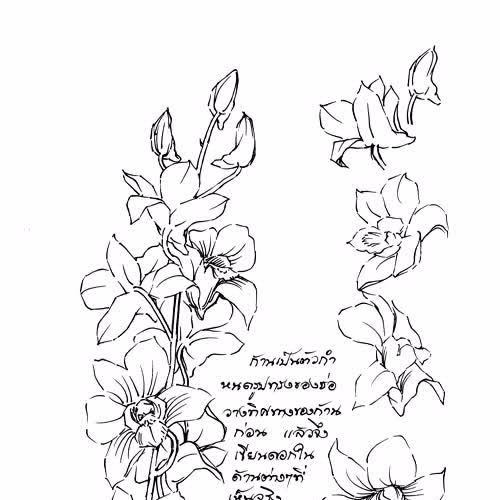 ก้านเป็นตัวกำ
หนดรูปทรงของช่อ
วางทิศทางของก้าน
ก่อน แล้วจึง
เขียนดอกใน
ด้านต่างๆที่
เห็นจริง